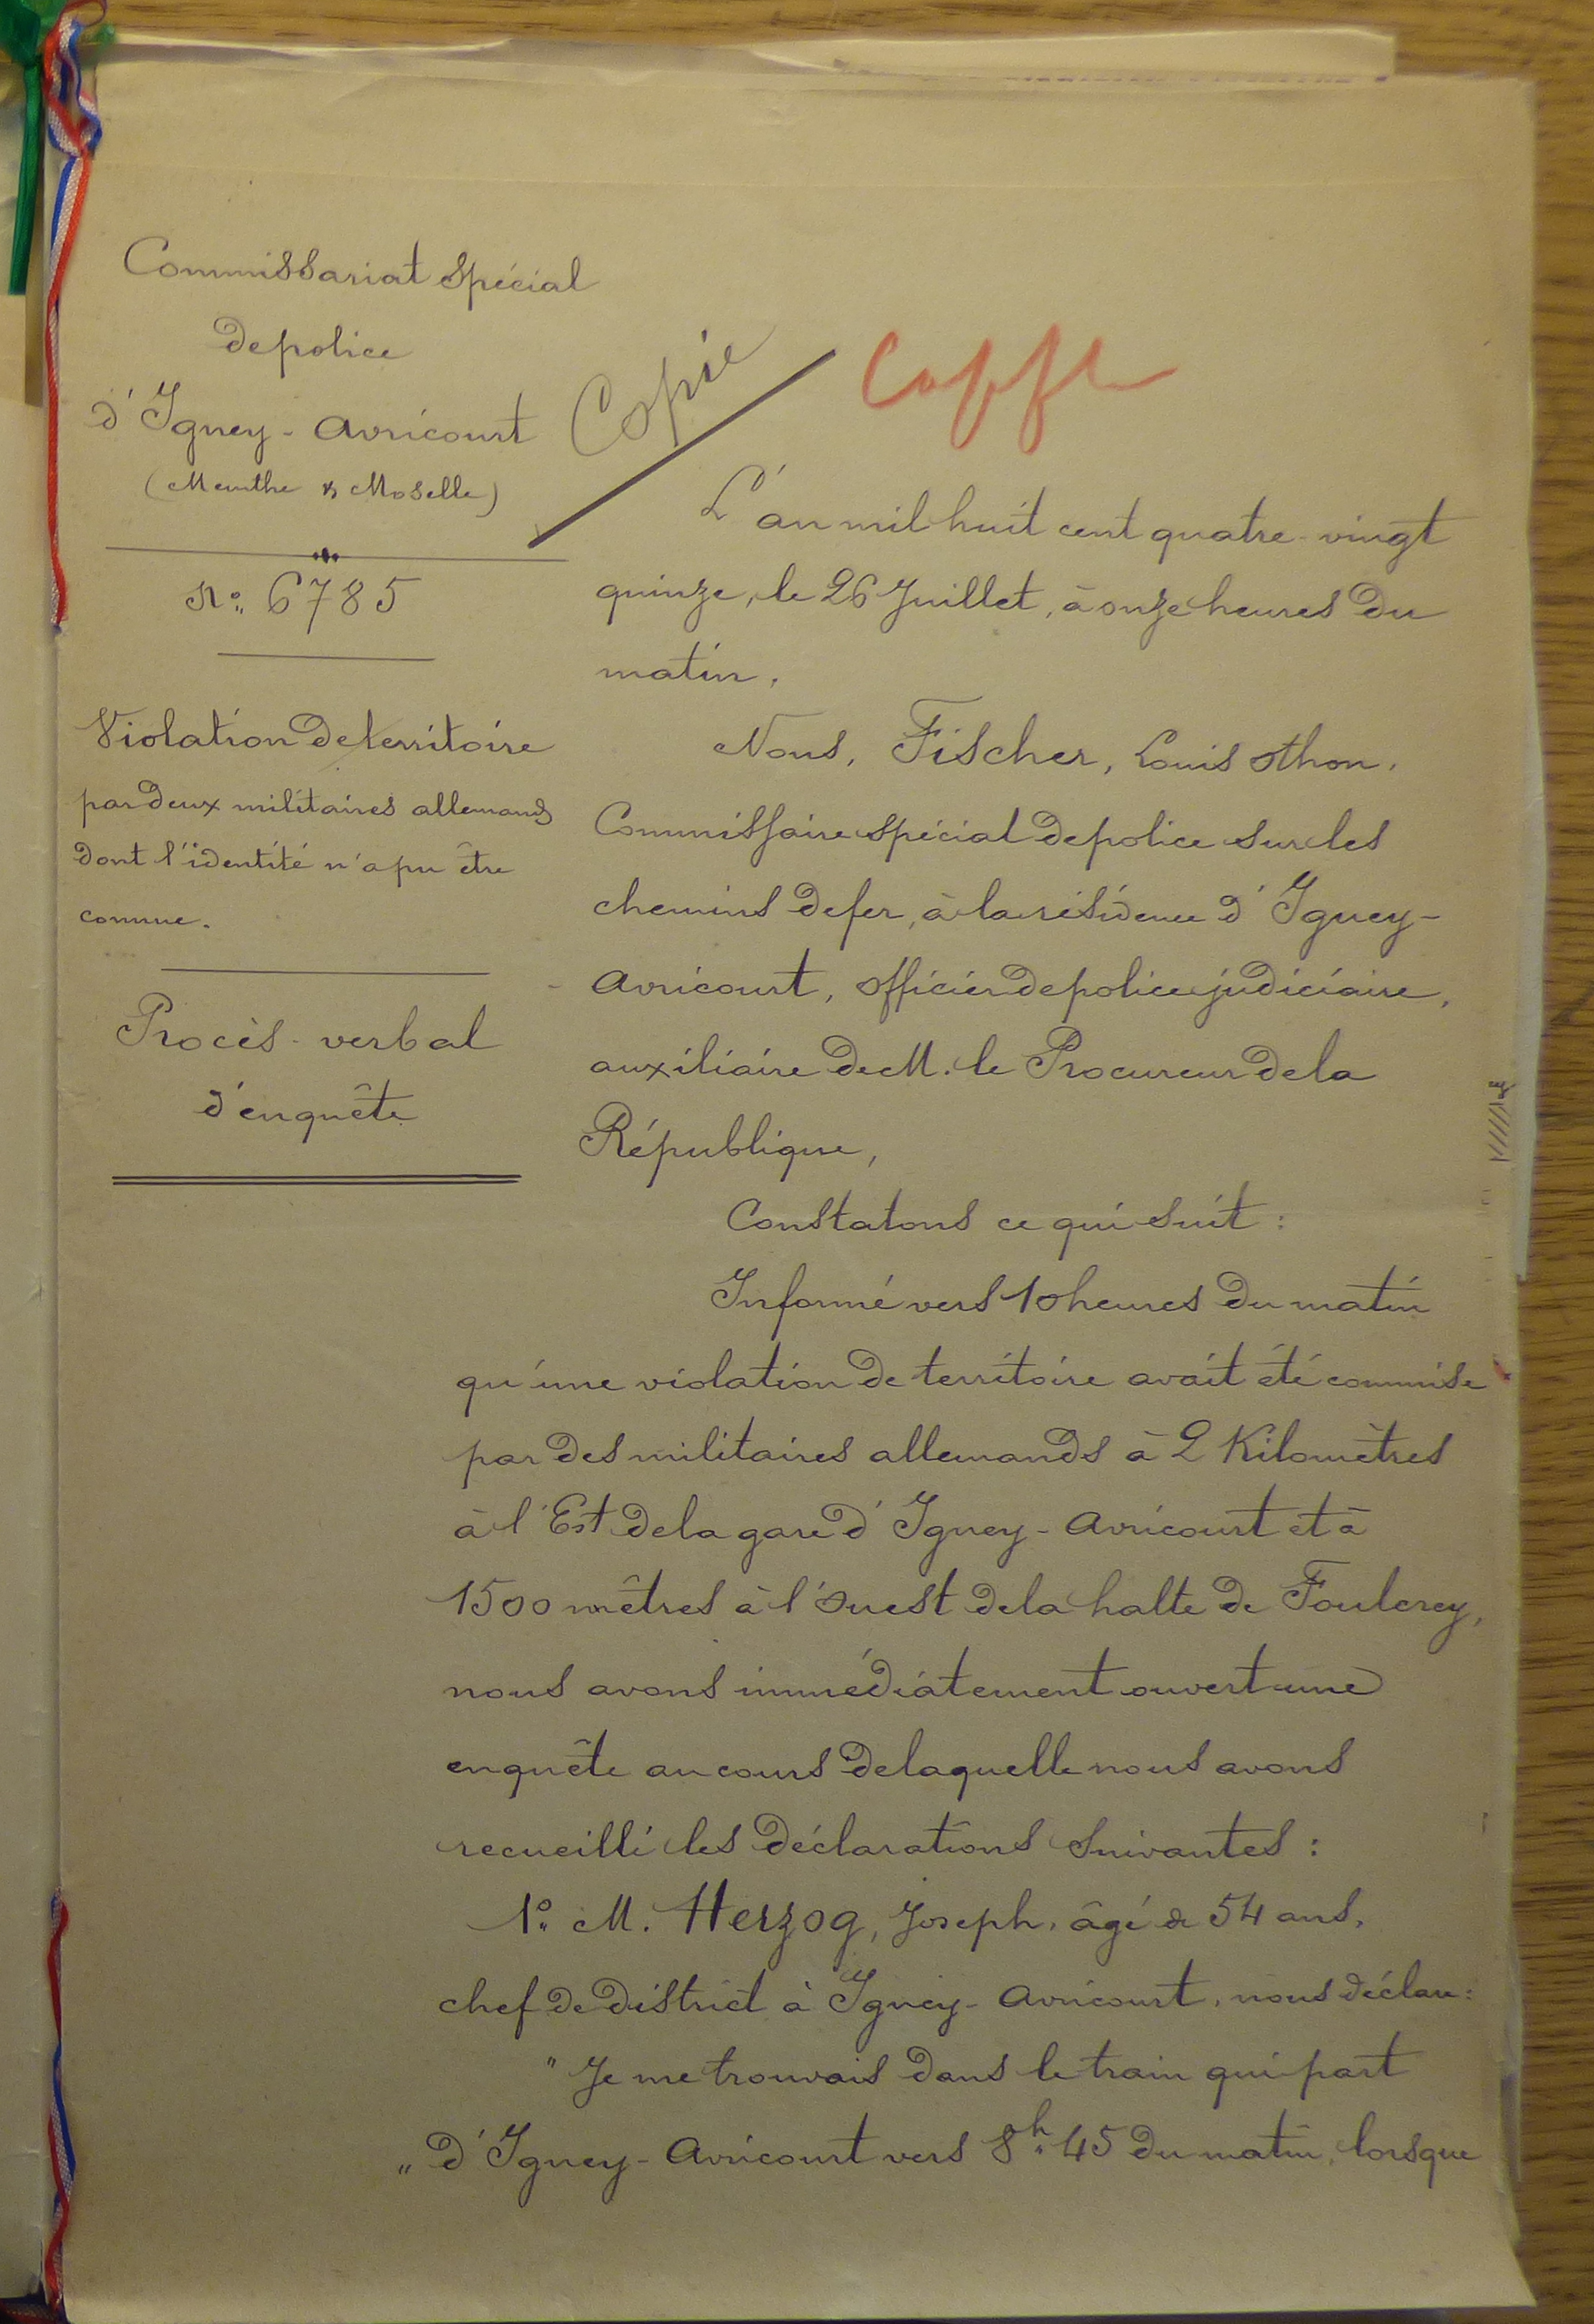 Commissariat Spécial
de police
d'Igney-Avricourt
(Meurthe & Moselle)
No. 6785
Violation de territoire
par deux militaires allemands
dont l'identité n'a pu être
connue.
Procès-verbal
d'enquête
Copie
L'an mil huit cent quatre-vingt
quinze, le 26 Juillet, à onze heures du
matin,
Nous, Fischer, Louis Othon,
Commissaire spécial de police sur les
chemins de fer, à la résidence d'Igney-
Avricourt, officier de police judiciaire,
auxiliaire de M. le Procureur de la
République,
Constatons ce qui suit :
Informé vers 10 heures du matin
qu'une violation de territoire avait été commise
par des militaires allemands à 2 Kilomètres
à l'Est de la gare d'Igney-Avricourt et à
1500 mètres à l'Ouest de la halte de Foulcrey,
nous avons immédiatement ouvert une
enquête au cours de laquelle nous avons
recueilli les déclarations suivantes :
1o. M. Herzog, Joseph, âgé de 54 ans,
chef de district à Igney-Avricourt, nous déclare :
" Je me trouvais dans le train qui part
" d'Igney-Avricourt vers 8h.45 du matin, lorsque